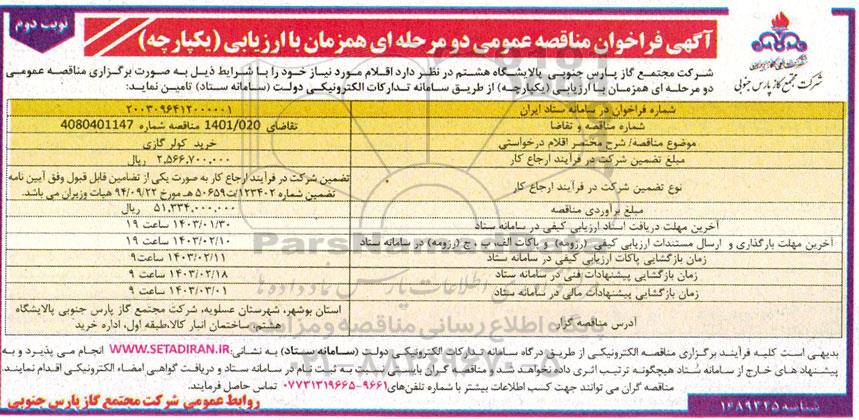 نوبت دوم
آگهی فراخوان مناقصه عمومی دو مرحله ای همزمان با ارزیابی (یکپارچه)
شرکت مجتمع گاز پارس جنوبی
شرکت مجتمع گاز پارس جنوبی پالایشگاه هشتم در نظر دارد اقلام مورد نیاز خود را با شرایط ذیل به صورت برگزاری مناقصه عمومی
دو مرحله ای همزمان با ارزیابی (یکپارچه) از طریق سامانه تدارکات الکترونیکی دولت (سامانه ستاد) تامین نماید:
شماره فراخوان در سامانه ستاد ایران ۲۰۰۳۰۹۶۴۱۲۰۰۰۰۰۱
شماره مناقصه و تقاضا تقاضای 1401/020 مناقصه شماره 4080401147
موضوع مناقصه/ شرح مختصر اقلام درخواستی خرید کولر گازی
مبلغ تضمین شرکت در فرآیند ارجاع کار ۲,۵۶۶,۷۰۰,۰۰۰ ریال
نوع تضمین شرکت در فرآیند ارجاع کار تضمین شرکت در فرآیند ارجاع کار به صورت یکی از تضامین قابل قبول وفق آیین نامه
تضمین شماره ۱۲۳۴۰۲/ت۵۰۶۵۹ هـ مورخ ۹۴/۰۹/۲۲ هیات وزیران می باشد.
مبلغ برآوردی مناقصه ۵۱,۳۳۴,۰۰۰,۰۰۰ ریال
آخرین مهلت دریافت اسناد ارزیابی کیفی در سامانه ستاد ۱۴۰۳/۰۱/۳۰ ساعت ۱۹
آخرین مهلت بارگذاری و ارسال مستندات ارزیابی کیفی (رزومه) و پاکات الف، ب، ج (رزومه) در سامانه ستاد ۱۴۰۳/۰۲/۱۰ ساعت ۱۹
زمان بازگشایی پاکات ارزیابی کیفی در سامانه ستاد ۱۴۰۳/۰۲/۱۱ ساعت ۹
زمان بازگشایی پیشنهادات فنی در سامانه ستاد ۱۴۰۳/۰۲/۱۸ ساعت ۹
زمان بازگشایی پیشنهادات مالی در سامانه ستاد ۱۴۰۳/۰۳/۰۱ ساعت ۹
آدرس مناقصه گزار استان بوشهر، شهرستان عسلویه، شرکت مجتمع گاز پارس جنوبی پالایشگاه
هشتم ساختمان انبار کالا، طبقه اول، اداره خرید
بدیهی است کلیه فرآیند برگزاری مناقصه الکترونیکی از طریق درگاه سامانه تدارکات الکترونیکی دولت (سامانه ستاد) به نشانی: WWW.SETADIRAN.IR انجام می پذیرد و به
پیشنهاد های خارج از سامانه ستاد هیچگونه ترتیب اثری داده نخواهد شد و مناقصه گران بایستی نسبت به ثبت نام در سامانه ستاد و دریافت گواهی امضاء الکترونیکی اقدام نمایند.
مناقصه گران می توانند جهت کسب اطلاعات بیشتر با شماره تلفن‌های ۹۶۶۱-۰۷۷۳۱۳۱۹۶۶۵ تماس حاصل فرمایند.
روابط عمومی شرکت مجتمع گاز پارس جنوبی
شناسه ۱۶۸۹۴۲۵
ParsNamadData
پایگاه اطلاع رسانی مناقصه و مزایده